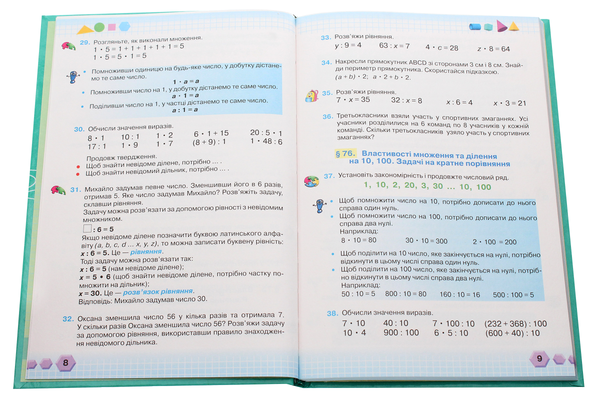 29. Розгляньте, як виконали множення.
1 • 5 = 1 + 1 + 1 + 1 + 1 = 5
1 • 5 = 5 • 1 = 5
• Помноживши одиницю на будь-яке число, у добутку дістане-
мо те саме число.
1 • a = a
• Помноживши число на 1, у добутку дістанемо те саме число.
a • 1 = a
• Поділивши число на 1, у частці дістанемо те саме число.
a : 1 = a
30. Обчисли значення виразів.
8 • 1 10 : 1 1 • 2 6 • 1 + 15 20 : 5 • 1
17 : 1 1 • 9 1 • 7 (8 + 9) : 1 1 • 48 : 6
Продовж твердження.
• Щоб знайти невідоме ділене, потрібно ... .
• Щоб знайти невідомий дільник, потрібно ... .
31. Михайло задумав певне число. Зменшивши його в 6 разів,
отримав 5. Яке число задумав Михайло? Розв'яжіть задачу,
склавши рівняння.
Задачу можна розв'язати за допомогою рівності з невідомим
множником.
: 6 = 5
Якщо невідоме ділене позначити буквою латинського алфа-
віту (a, b, c, d ... x, y, z), то можна записати буквену рівність:
x : 6 = 5. Це — рівняння.
Тоді задачу можна розв'язати так:
x : 6 = 5 (нам невідоме ділене);
x = 5 • 6 (щоб знайти невідоме ділене, потрібно частку по-
множити на дільник);
x = 30. Це — розв'язок рівняння.
Відповідь: Михайло задумав число 30.
32. Оксана зменшила число 56 у кілька разів та отримала 7.
У скільки разів Оксана зменшила число 56? Розв'яжи задачу
за допомогою рівняння, використавши правило знаходжен-
ня невідомого дільника.
8
33. Розв'яжи рівняння.
y : 9 = 4 63 : x = 7 4 • c = 28 z • 8 = 64
34. Накресли прямокутник ABCD зі сторонами 3 см і 8 см. Знай-
ди периметр прямокутника. Скористайся підказкою.
(a + b) • 2; a • 2 + b • 2.
35. Розв'яжи рівняння.
7 • x = 35 32 : x = 8 x : 6 = 4 x • 3 = 21
36. Третьокласники взяли участь у спортивних змаганнях. Усі
учасники розділилися на 6 команд по 8 учасників у кожній
команді. Скільки третьокласників узяло участь у спортивних
змаганнях?
§ 76. Властивості множення та ділення
на 10, 100. Задачі на кратне порівняння
37. Установіть закономірність і продовжте числовий ряд.
1, 10, 2, 20, 3, 30 ... 10, 100
• Щоб помножити число на 10, потрібно дописати до нього
справа один нуль.
• Щоб помножити число на 100, потрібно дописати до нього
справа два нулі.
Наприклад:
8 • 10 = 80 30 • 10 = 300 2 • 100 = 200
• Щоб поділити на 10 число, яке закінчується на нулі, потрібно
відкинути в цьому числі справа один нуль.
• Щоб поділити на 100 число, яке закінчується на нулі, потріб-
но відкинути в цьому числі справа два нулі.
Наприклад:
50 : 10 = 5 800 : 10 = 80 160 : 10 = 16 500 : 100 = 5
38. Обчисли значення виразів.
7 • 10 40 : 10 7 • 100 : 10 (232 + 368) : 100
10 • 4 900 : 100 6 • 5 : 10 (600 + 40) : 10
9